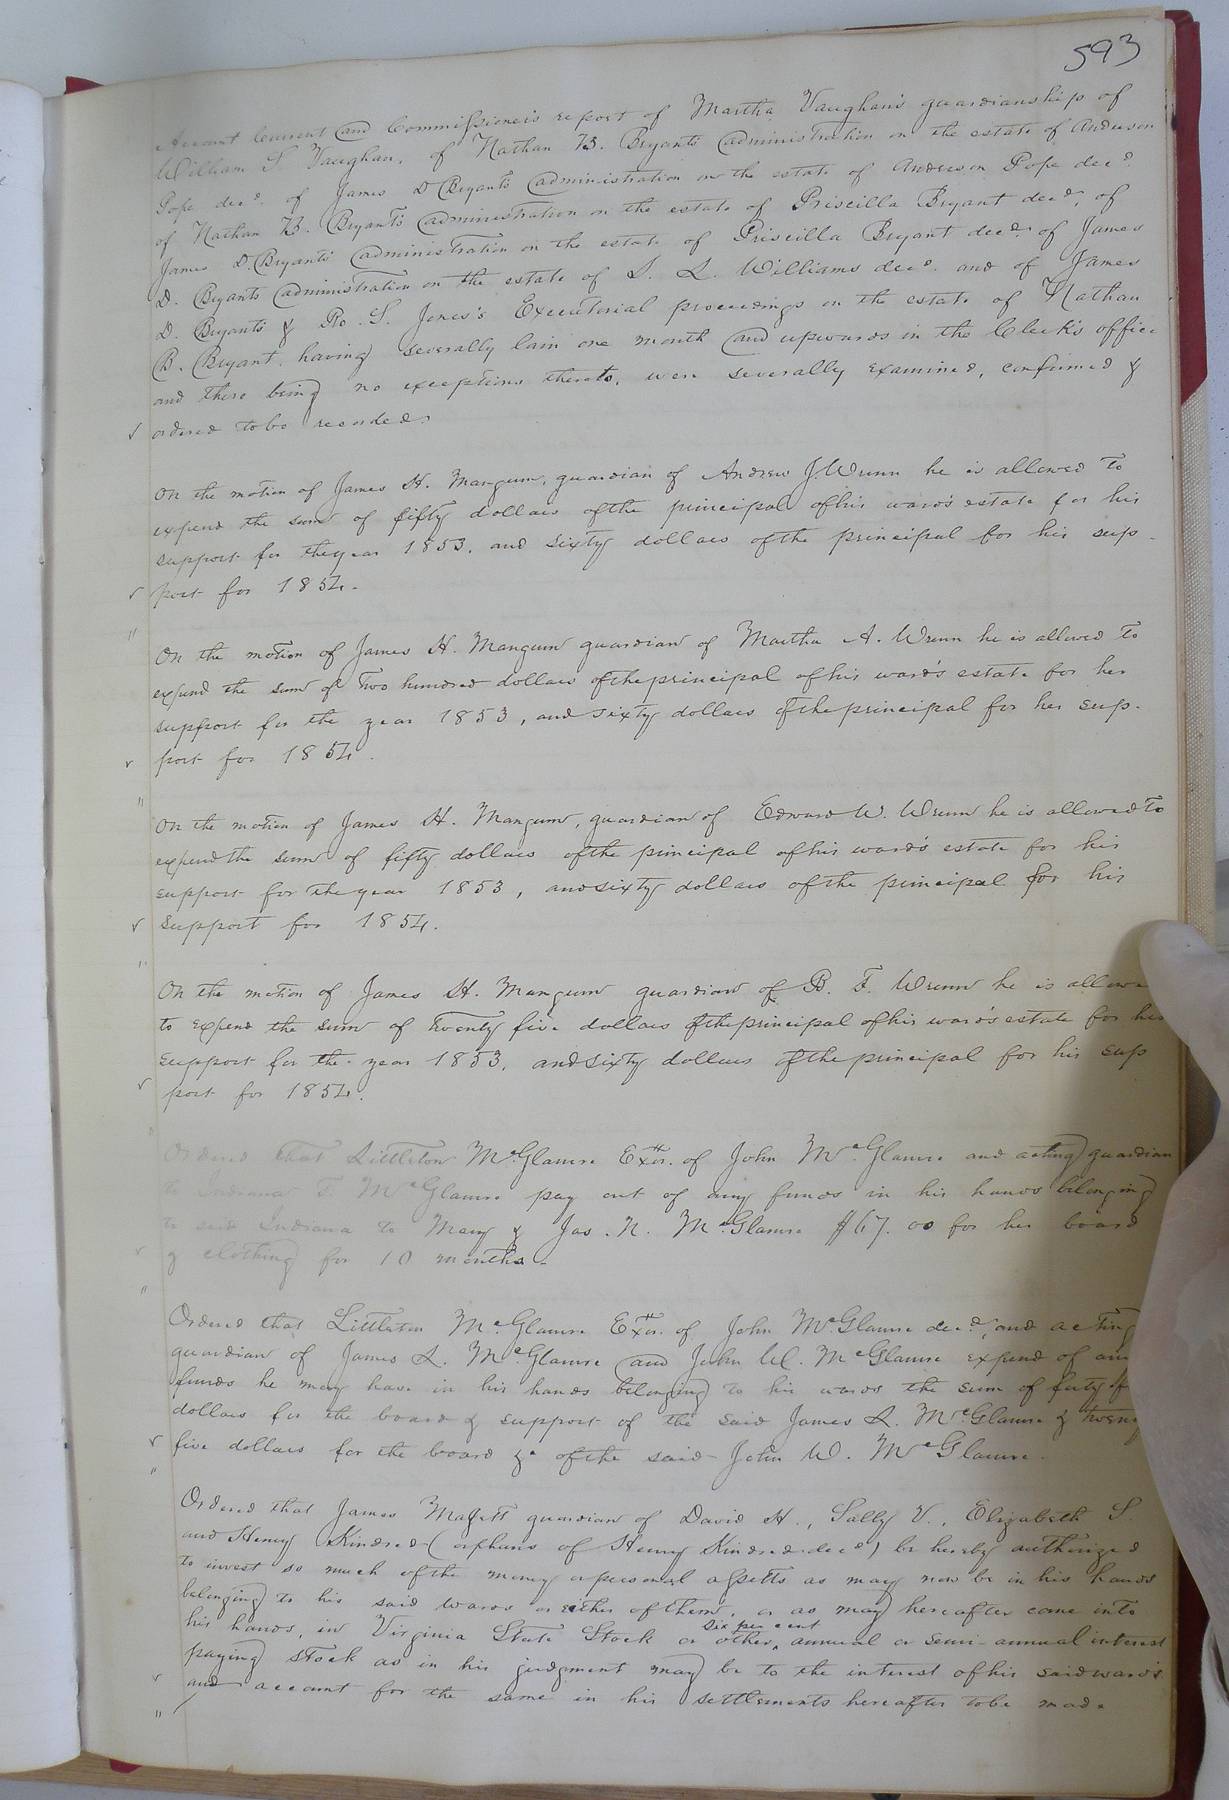 593
Account Current and Commissioner's report of Martha Vaughan's guardianship of
William S. Vaughan, of Nathan B. Bryant's administration on the estate of Anderson
Pope decd. of James D Bryant's administration on the estate of Anderson Pope decd.
of Nathan B. Bryant's administration on the estate of Priscilla Bryant decd, of
James D. Bryants administration on the estate of Priscilla Bryant decd. of James
D. Bryants administration on the estate of S. L. Williams decd. and of James
D. Bryant's & Ro. S. Jones's Executorial proceedings on the estate of Nathan
B. Bryant, having severally lain one month and upwards in the Clerk's office
and there being no exceptions thereto, were severally examined, confirmed &
ordered to be recorded.
On the motion of James H. Mangum, guardian of Andrew J. Wrenn he is allowed to
expend the sum of fifty dollars of the principal of his ward's estate for his
support for the year 1853, and sixty dollars of the principal for his sup-
port for 1854.
On the motion of James H. Mangum guardian of Martha A. Wrenn he is allowed to
expend the sum of two hundred dollars of the principal of his ward's estate for her
support for the year 1853, and sixty dollars of the principal for her sup-
port for 1854.
On the motion of James H. Mangum, guardian of Edward W. Wrenn he is allowed to
expend the sum of fifty dollars of the principal of his ward's estate for his
support for the year 1853, and sixty dollars of the principal for his
support for 1854.
On the motion of James H. Mangum guardian of B. F. Wrenn he is allowe
to expend the sum of twenty five dollars of the principal of his ward's estate for his
support for the year 1853, and sixty dollars of the principal for his sup
port for 1854.
Ordered that Littleton McGlamre Exr. of John McGlamre and acting guardian
to Indiana F. McGlamre pay out of any funds in his hands belonging
to said Indiana to Mary & Jas. N. McGlamre $67.00 for her board
& clothing for 10 months.
Ordered that Littleton McGlamre Exr. of John McGlamre decd, and acting
guardian of James L. McGlamre and John W. McGlamre expend of any
funds he may have in his hands belonging to his wards the sum of forty f
dollars for the board & support of the said James L. McGlamre & twen
five dollars for the board &c of the said John W. McGlamre.
Ordered that James Magett guardian of David H., Sally V., Elizabeth S.
and Henry Kindred (orphans of Henry Kindred decd) be hereby authorized
to invest so much of the money or personal assetts as may now be in his hands
belonging to his said wards or either of them, or as may hereafter come into
his hands, in Virginia State Stock or other six per cent annual or semi-annual interest
paying stock as in his judgment may be to the interest of his said wards
and account for the same in his settlements hereafter to be made